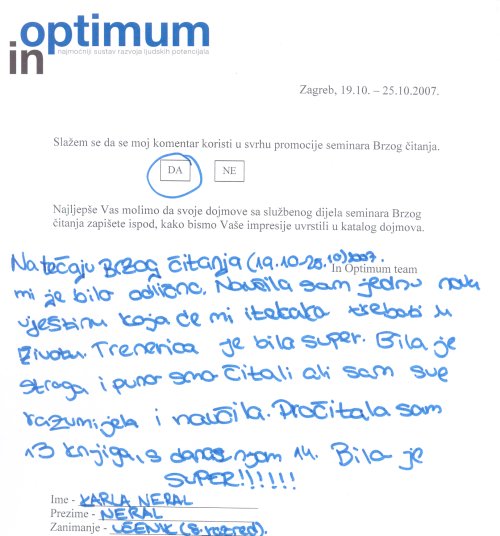 in optimum
najmoćniji sustav razvoja ljudskih potencijala
Zagreb, 19.10. – 25.10.2007.
Slažem se da se moj komentar koristi u svrhu promocije seminara Brzog čitanja.
DA NE
Najljepše Vas molimo da svoje dojmove sa službenog dijela seminara Brzog
čitanja zapišete ispod, kako bismo Vaše impresije uvrstili u katalog dojmova.
Na tečaju Brzog čitanja (19.10-25.10)2007.
In Optimum team
mi je bilo odlično. Naučila sam jednu novu
vještinu koja će mi itekako trebati u
životu. Trenerica je bila super. Bila je
stroga i puno smo čitali ali sam sve
razumijela i naučila. Pročitala sam
13 knjiga, s danas njom 14. Bilo je
SUPER!!!!!!
Ime - KARLA NERAL
Prezime - NERAL
Zanimanje - UČENIK (8. razred).